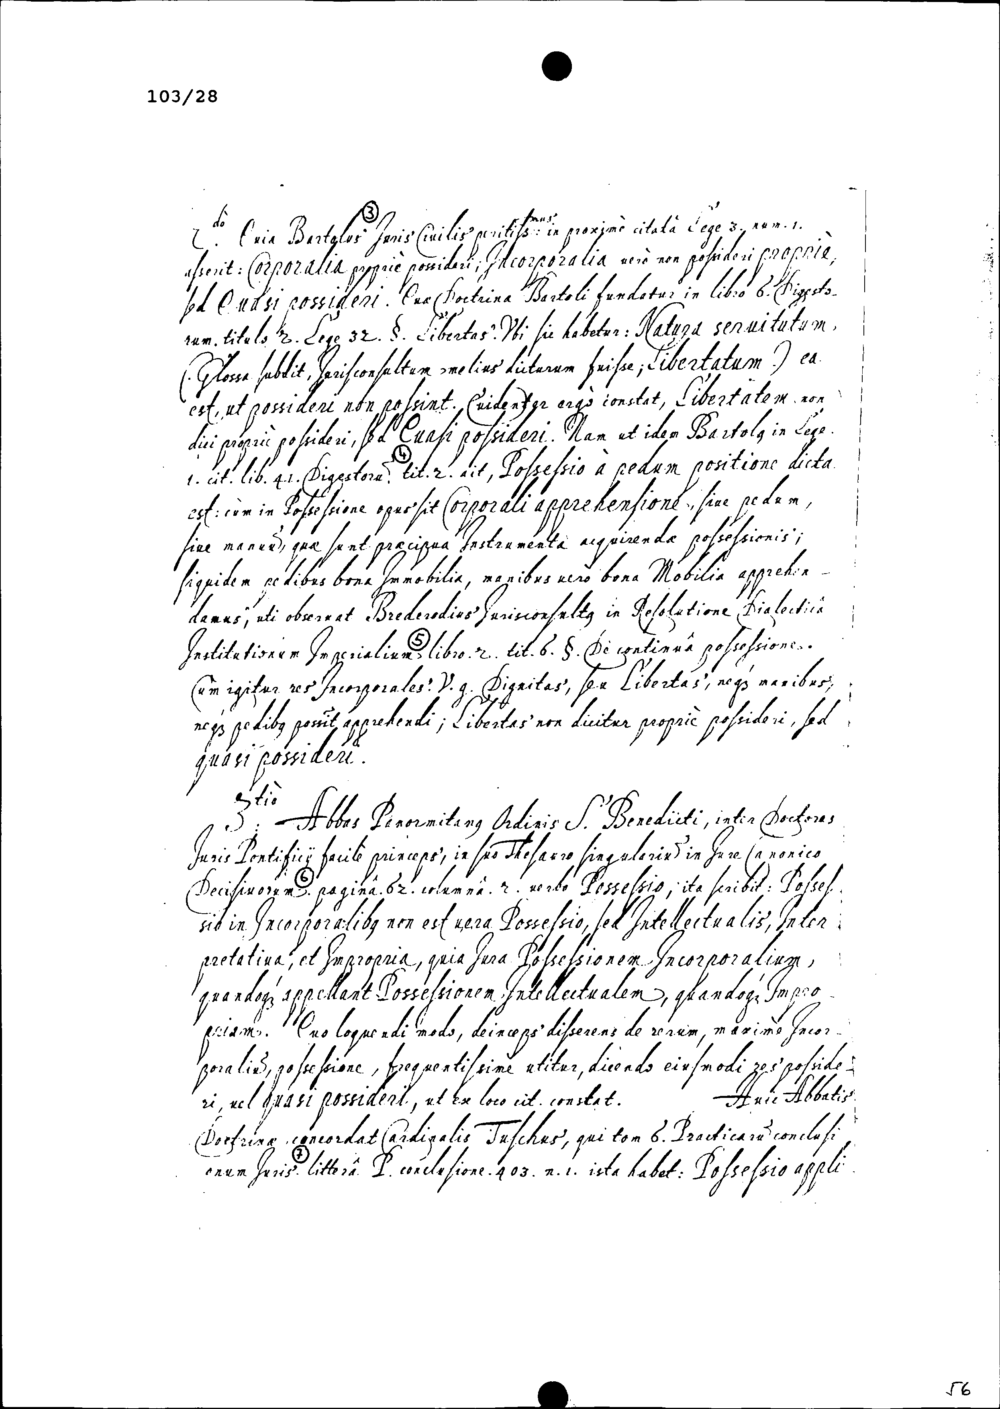 103/28
③
2.do Quia Bartolus Juris Civilis peritiss:mus in proximè citatâ Lege 3. num. 1.
asserit: Corporalia propriè possideri; Incorporalia verò non possideri propriè,
sed Quasi possideri. Quae Doctrina Bartoli fundatur in libro 8. Digesto-
rum. titulo 2. Lege 32. §. Libertas. Vbi sic habetur: Natura seruitutum,
(. Glossa subdit, Jurisconsultum melius dicturum fuisse; Libertatum .) ea
est, ut possideri non possint. Euidenter ergò constat, Libertatem non
dici propriè possideri, sed Quasi possideri. Nam ut idem Bartolq in Lege
④
1. cit. lib. 41. Digestorũ. tit. 2. ait, Possessio à pedum positione dicta
est: cùm in Possessione opus sit Corporali apprehensione, siue pedum,
siue manuũ, quae sunt praecipua Instrumenta acquirendae possessionis;
siquidem pedibus bona Immobilia, manibus verò bona Mobilia apprehen-
damus, uti obseruat Brederodius Jurisconsultq in Resolutione Dialecticâ
Institutionum Imperialium ⑤ libro. 2. tit. 6. §. De continuâ possessione.
Cum igitur res Incorporales. V. g. Dignitas, seu Libertas, neq; manibus,
neq; pedibq possĩt apprehendi; Libertas non dicitur propriè possideri, sed
quasi possideri.
3.tiò Abbas Panormitanq Ordinis S. Benedicti, inter Doctores
Juris Pontificij facilè princeps, in suo Thesauro singulariũ in Jure Canonico
Decisiuorum ⑥ paginâ. 62. columnâ. 2. verbo Possessio, ita scribit: Posses-
sio in Incorporalibq non est uera Possessio, sed Intellectualis, Inter
pretatiua, et Impropria, quia Jura Possessionem Incorporalium,
quandoq; appellant Possessionem Intellectualem, quandoq; Impro-
priam. Quo loquendi modo, deinceps disserens de rerum, maximè Incor-
poraliũ, possessione, frequentissimè utitur, dicendo eiusmodi res posside-
ri, uel quasi possideri, ut ex loco cit. constat. Huic Abbatis
Doctrinae concordat Cardinalis Tuschus, qui tom 6. Practicarũ conclusi
onum Juris ⑦ litterâ P. conclusione. 403. n. 1. ista habet: Possessio appli
56